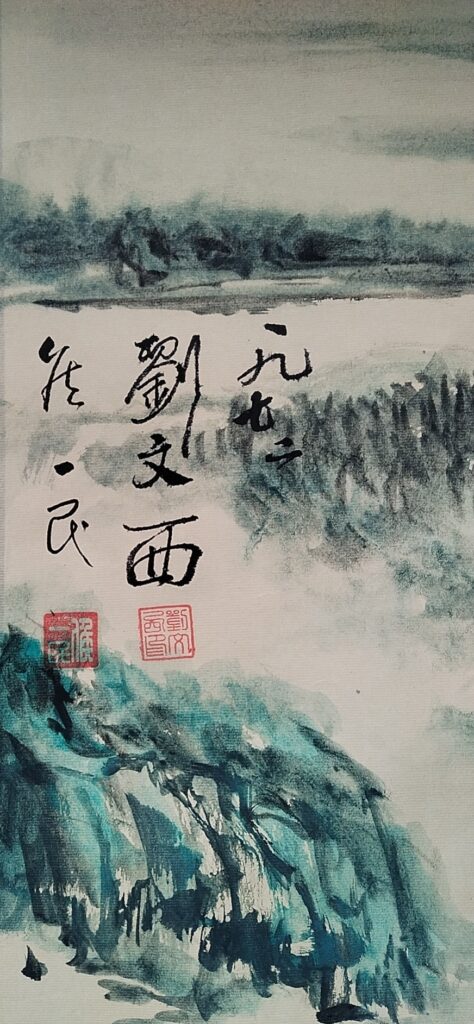 一九七二
劉文西
劉文西印
侯一民
侯一民